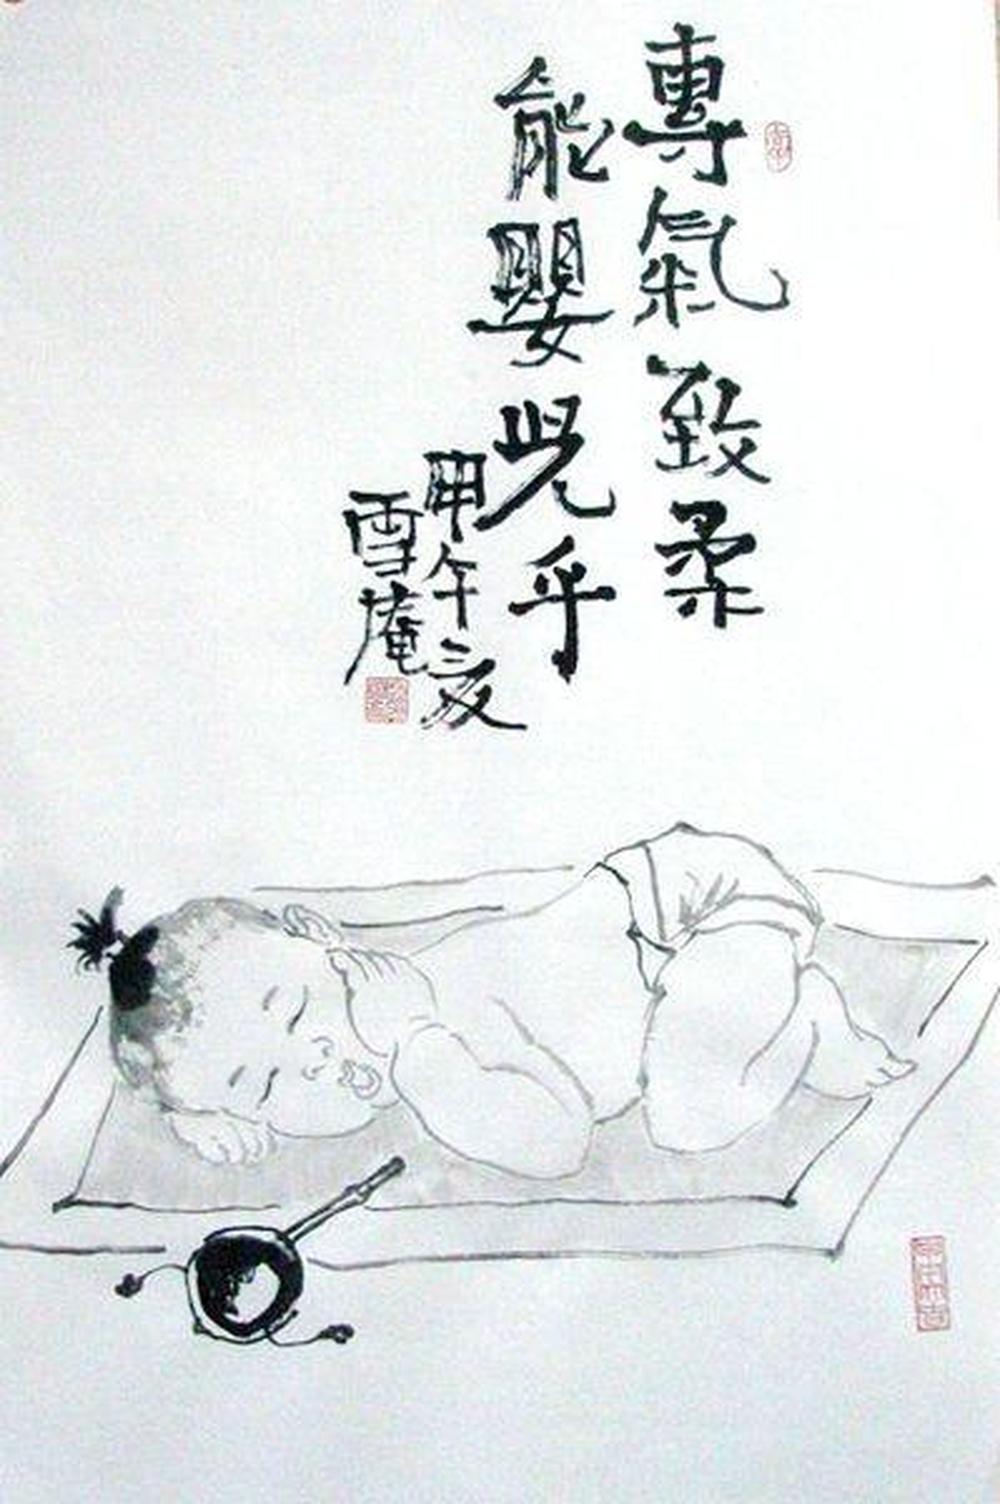 專氣致柔
能嬰兒乎
甲午夏
雪庵